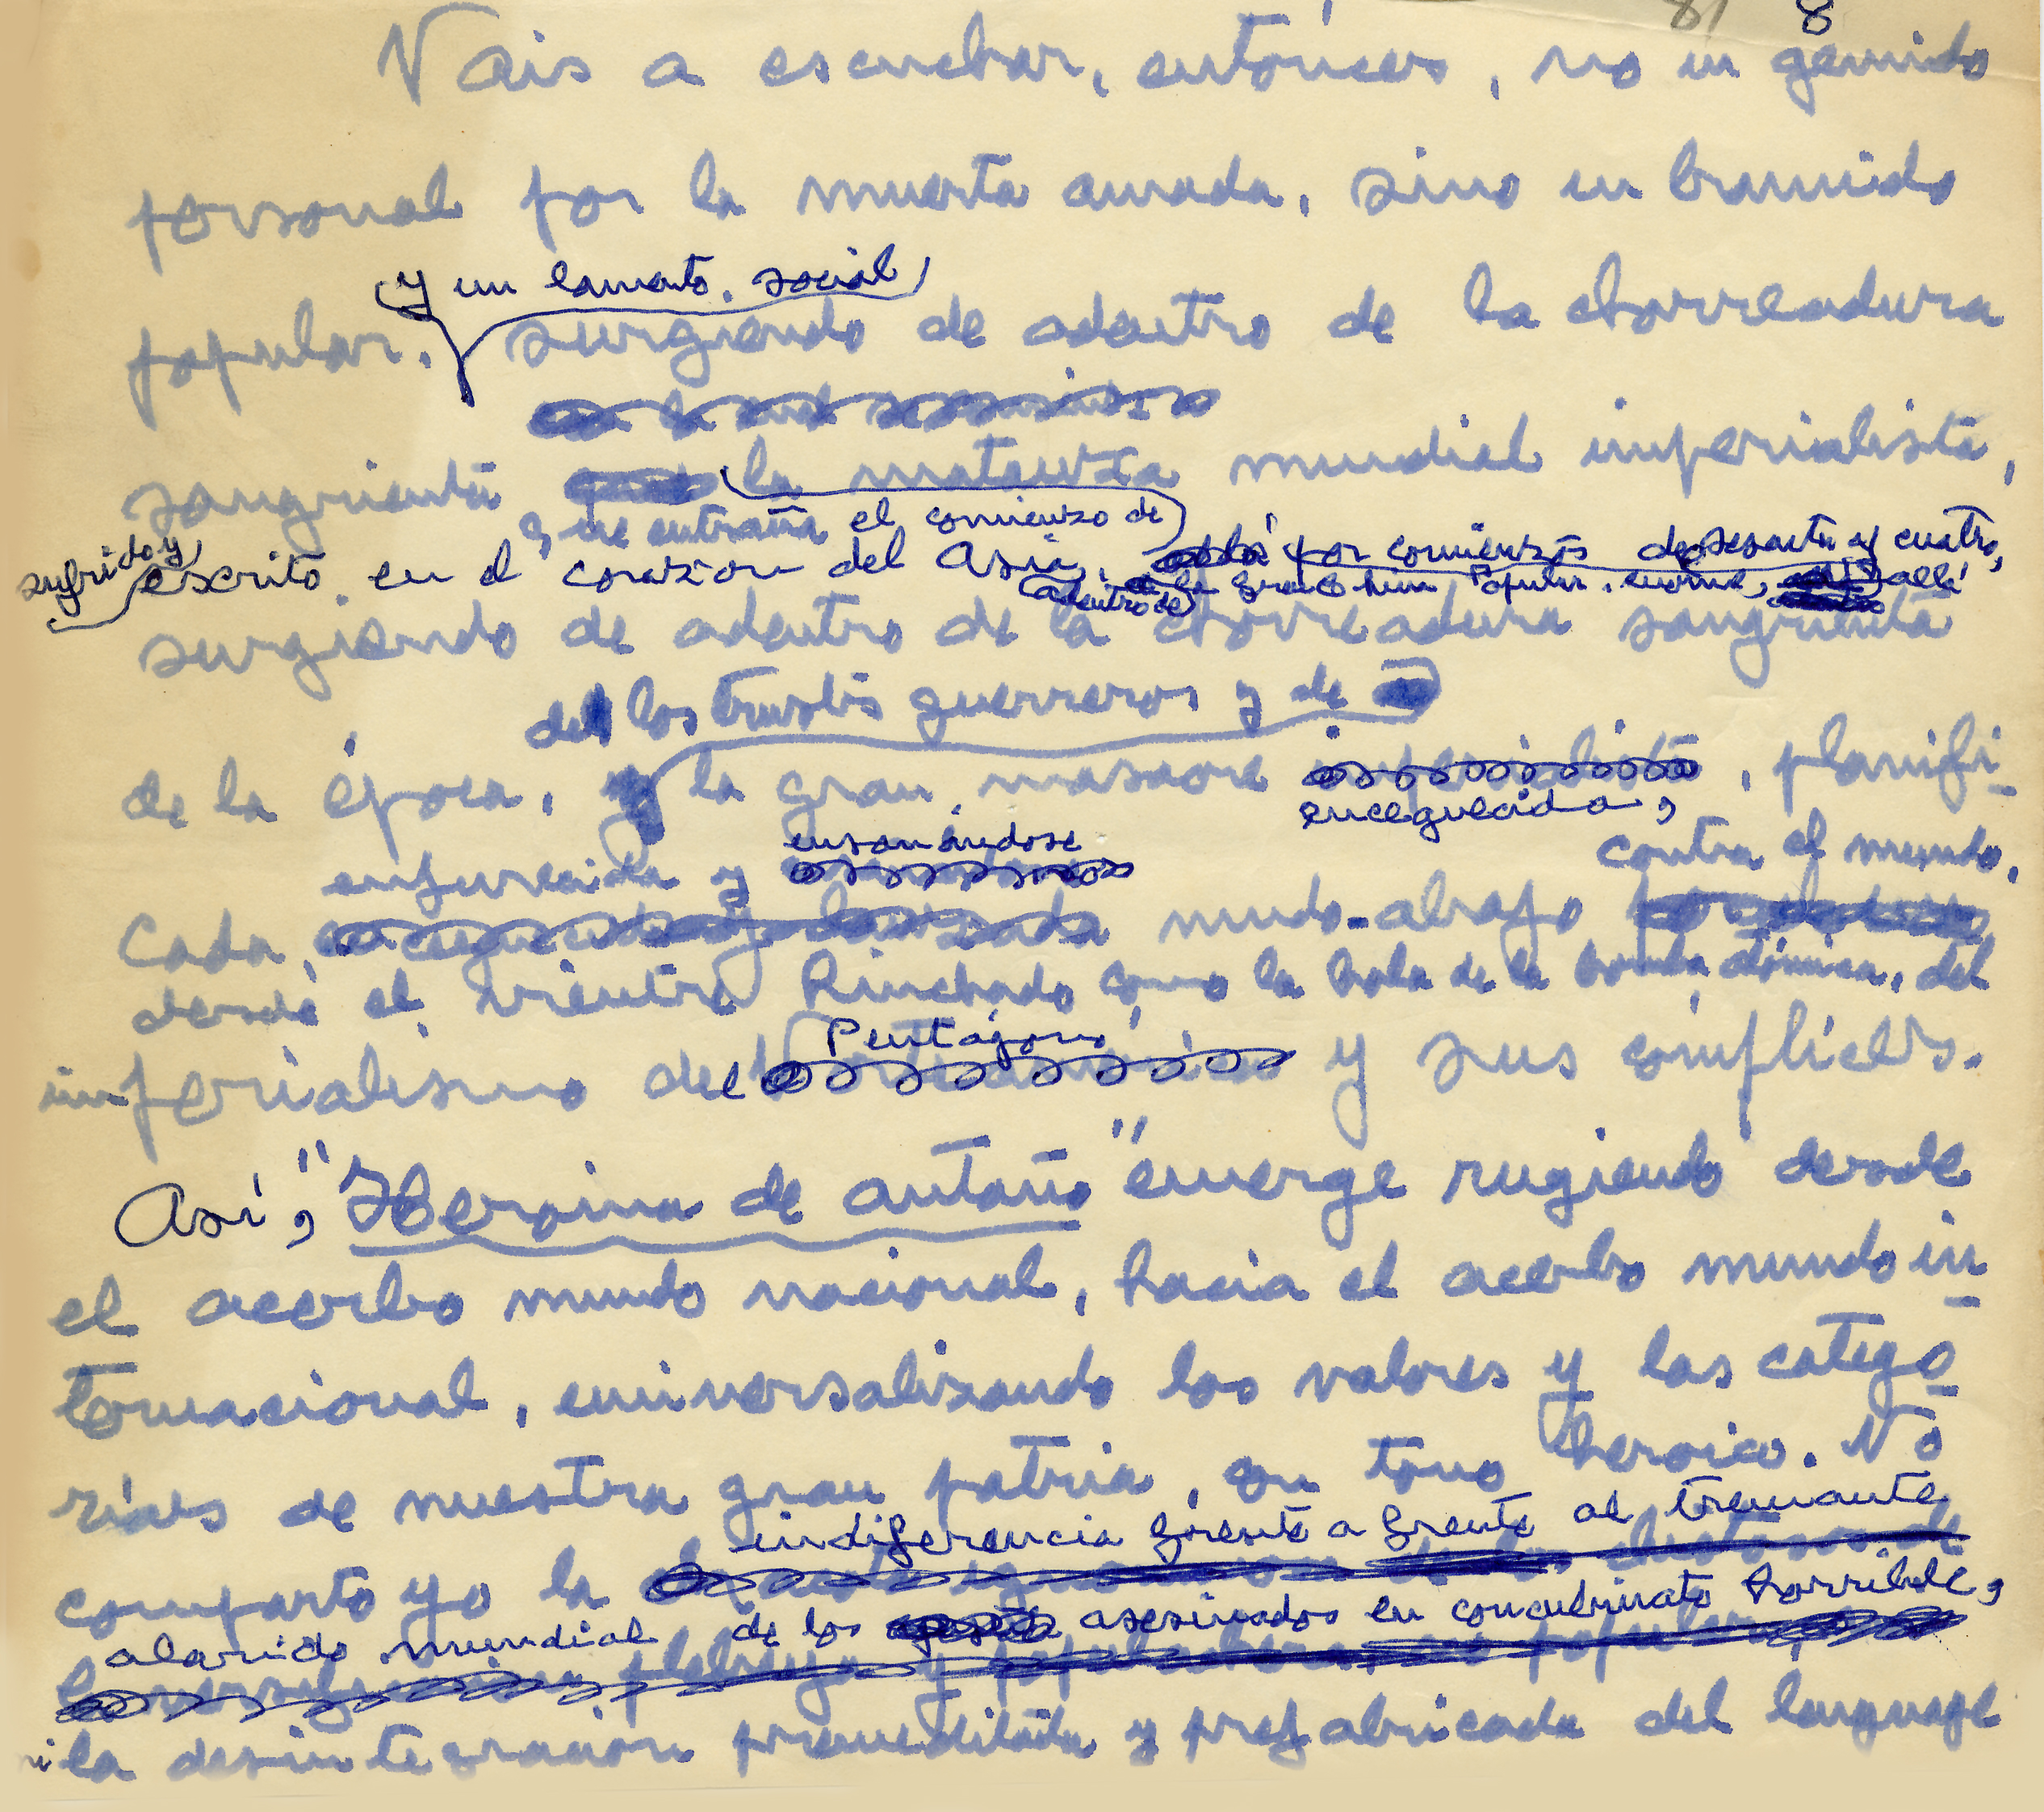 81 8
Vais a escuchar, entónces, no un gemido
personal por la muerta amada, sino un bramido
y un lamento social
popular, surgiendo de adentro de la chorreadura
sangrienta la matanza mundial imperialista,
que entraña el comienzo de
sufrido y escrito en el corazón del Asia, por comienzos de sesenta y cuatro,
adentro de la gran China Popular, enorme, allá
surgiendo de adentro de la chorreadura sangrienta
de los trusts guerreros y de
de la época, y la gran masacre imperialista, planifi-
enceguecida,
enfurecida y ensañándose contra el mundo,
cada, mundo-abajo
desde el vientre hinchado como la bola de la bomba atómica, del
Pentágono
imperialismo del y sus cómplices.
Así, "Heroina de antaño" emerge rugiendo desde
el acerbo mundo nacional, hacia el acerbo mundo in-
ternacional, universalizando los valores y las catego-
rías de nuestra gran patria, en tono heroico. No
indiferencia frente a frente al tremante
comparto yo la
alarido mundial de los asesinados en concubinato horrible,
ni la desintegración premeditada y prefabricada del lenguaje